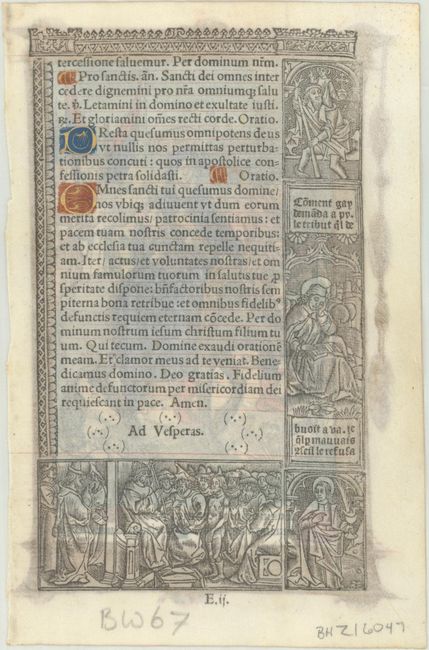 tercessione saluemur. Per dominum nr̄m.
Pro sanctis. ān. Sancti dei omnes inter
cedere dignemini pro nr̄a omniumq; salu
te. v̄. Letamini in domino et exultate iusti.
Et gloriamini om̄es recti corde. Oratio.
PResta quesumus omnipotens deus
vt nullis nos permittas perturba-
tionibus concuti: quos in apostolice con-
fessionis petra solidasti. Oratio.
OMnes sancti tui quesumus domine/
nos vbiq; adiuuent vt dum eorum
merita recolimus/ patrocinia sentiamus: et
pacem tuam nostris concede temporibus:
et ab ecclesia tua cunctam repelle nequiti-
am. Iter/ actus/ et voluntates nostras/ et om
nium famulorum tuorum in salutis tue ꝓ
speritate dispone: bn̄factoribus nostris sem
piterna bona retribue: et omnibus fidelibꝰ
defunctis requiem eternam cōcede. Per do
minum nostrum iesum christum filium tu
um. Qui tecum. Domine exaudi orationē
meam. Et clamor meus ad te veniat. Bene
dicamus domino. Deo gratias. Fidelium
anime defunctorum per misericordiam dei
requiescant in pace. Amen.
Ad Vesperas.
Cōment gay
demāda a py.
le tribut
buoit a
mauuais
le refusa
E.ij.
BW67
BHZ16047